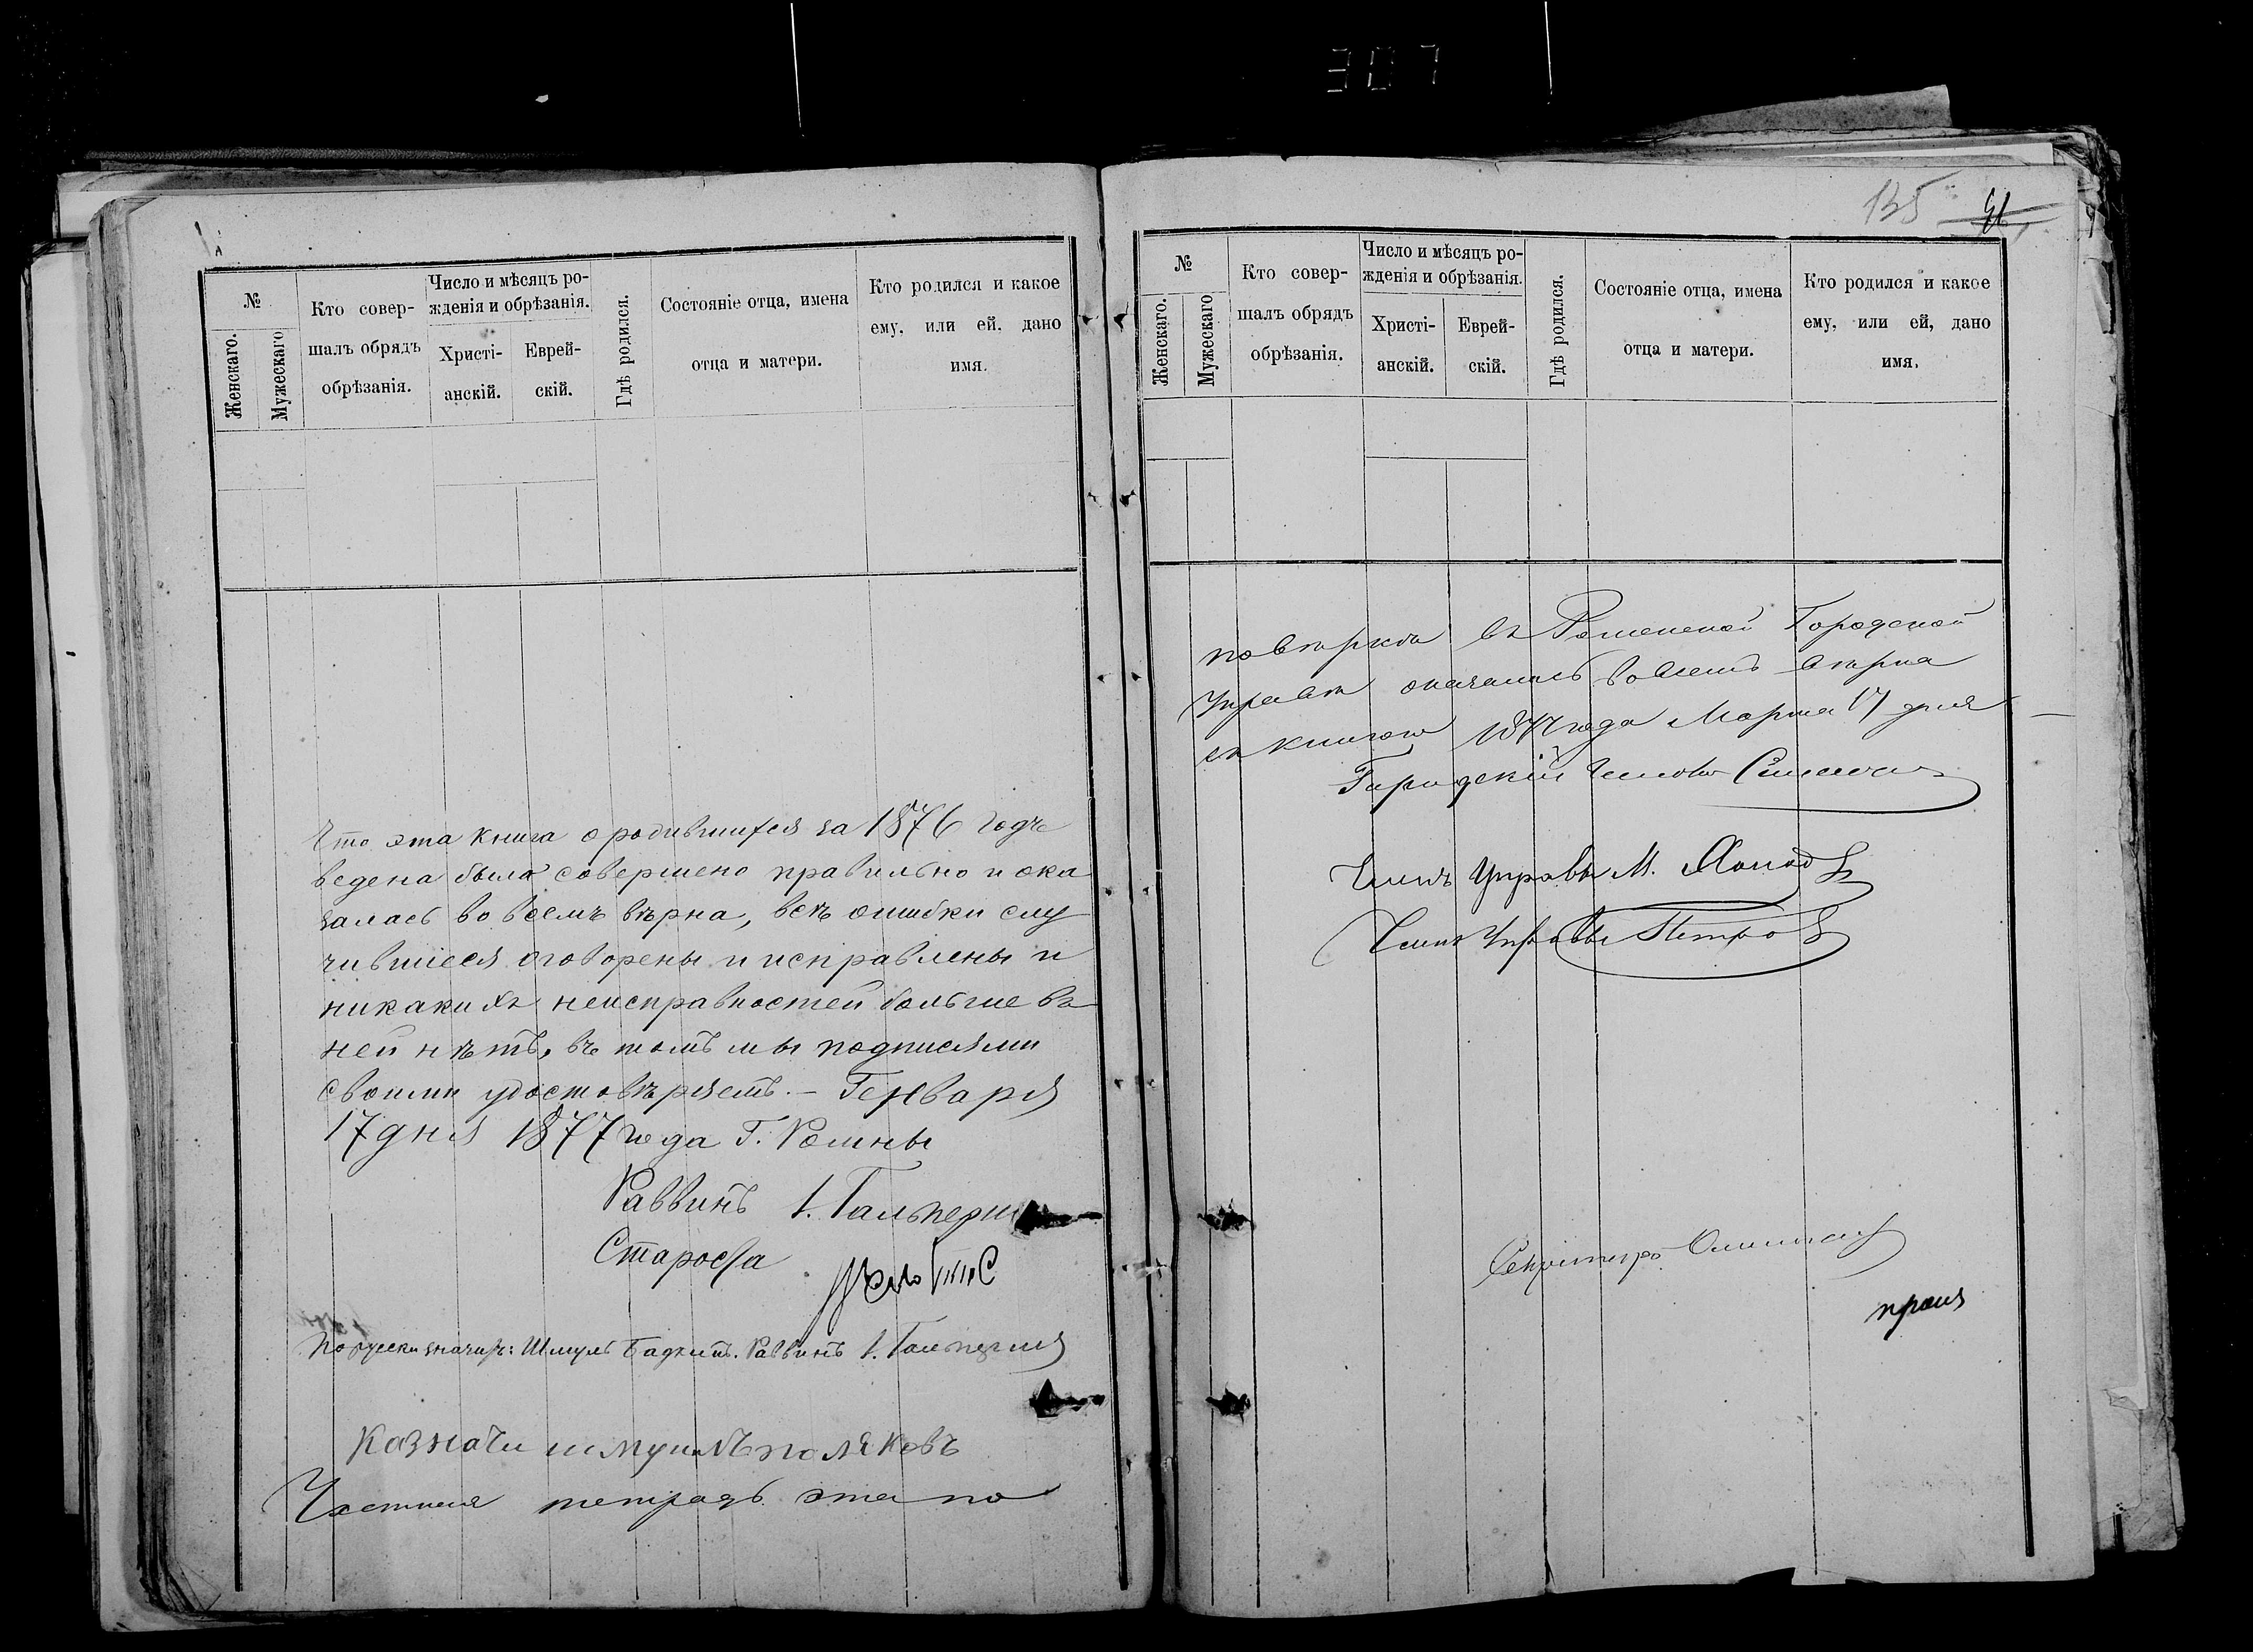 307
135 91
№
Женскаго.
Мужескаго
Кто совер-
шалъ обрядъ
обрѣзанія.
Число и мѣсяцъ ро-
жденія и обрѣзанія.
Христі-
анскій.
Еврей-
скій.
Гдѣ родился.
Состояніе отца, имена
отца и матери.
Кто родился и какое
ему, или ей, дано
имя.
Что эта книга о родившихся за 1876 годъ
ведена была совершено правильно и ока
залась во всемъ вѣрна, всѣ ошибки слу
чившіеся оговорены и исправлены и
никакихъ неисправностей больше въ
ней нѣтъ, въ томъ мы подписями
своими удостовѣряемъ. – Генваря
17 дня 1877 года Г. Ромны
Раввинъ І. Гальперинъ
Староста
По русски значитъ: Шмуль Раввинъ І. Гальперинъ
Казначи шмуилъ поляковъ
тетрадь эта по
№
Женскаго.
Мужескаго
Кто совер-
шалъ обрядъ
обрѣзанія.
Число и мѣсяцъ ро-
жденія и обрѣзанія.
Христі-
анскій.
Еврей-
скій.
Гдѣ родился.
Состояніе отца, имена
отца и матери.
Кто родился и какое
ему, или ей, дано
имя.
повѣркѣ въ Роменской Городской
Управѣ оказалась во всемъ вѣрна
съ книгою 1877 года Марта 17 дня
Городскій
Членъ Управы М.
Членъ Управы Петров
Секретарь